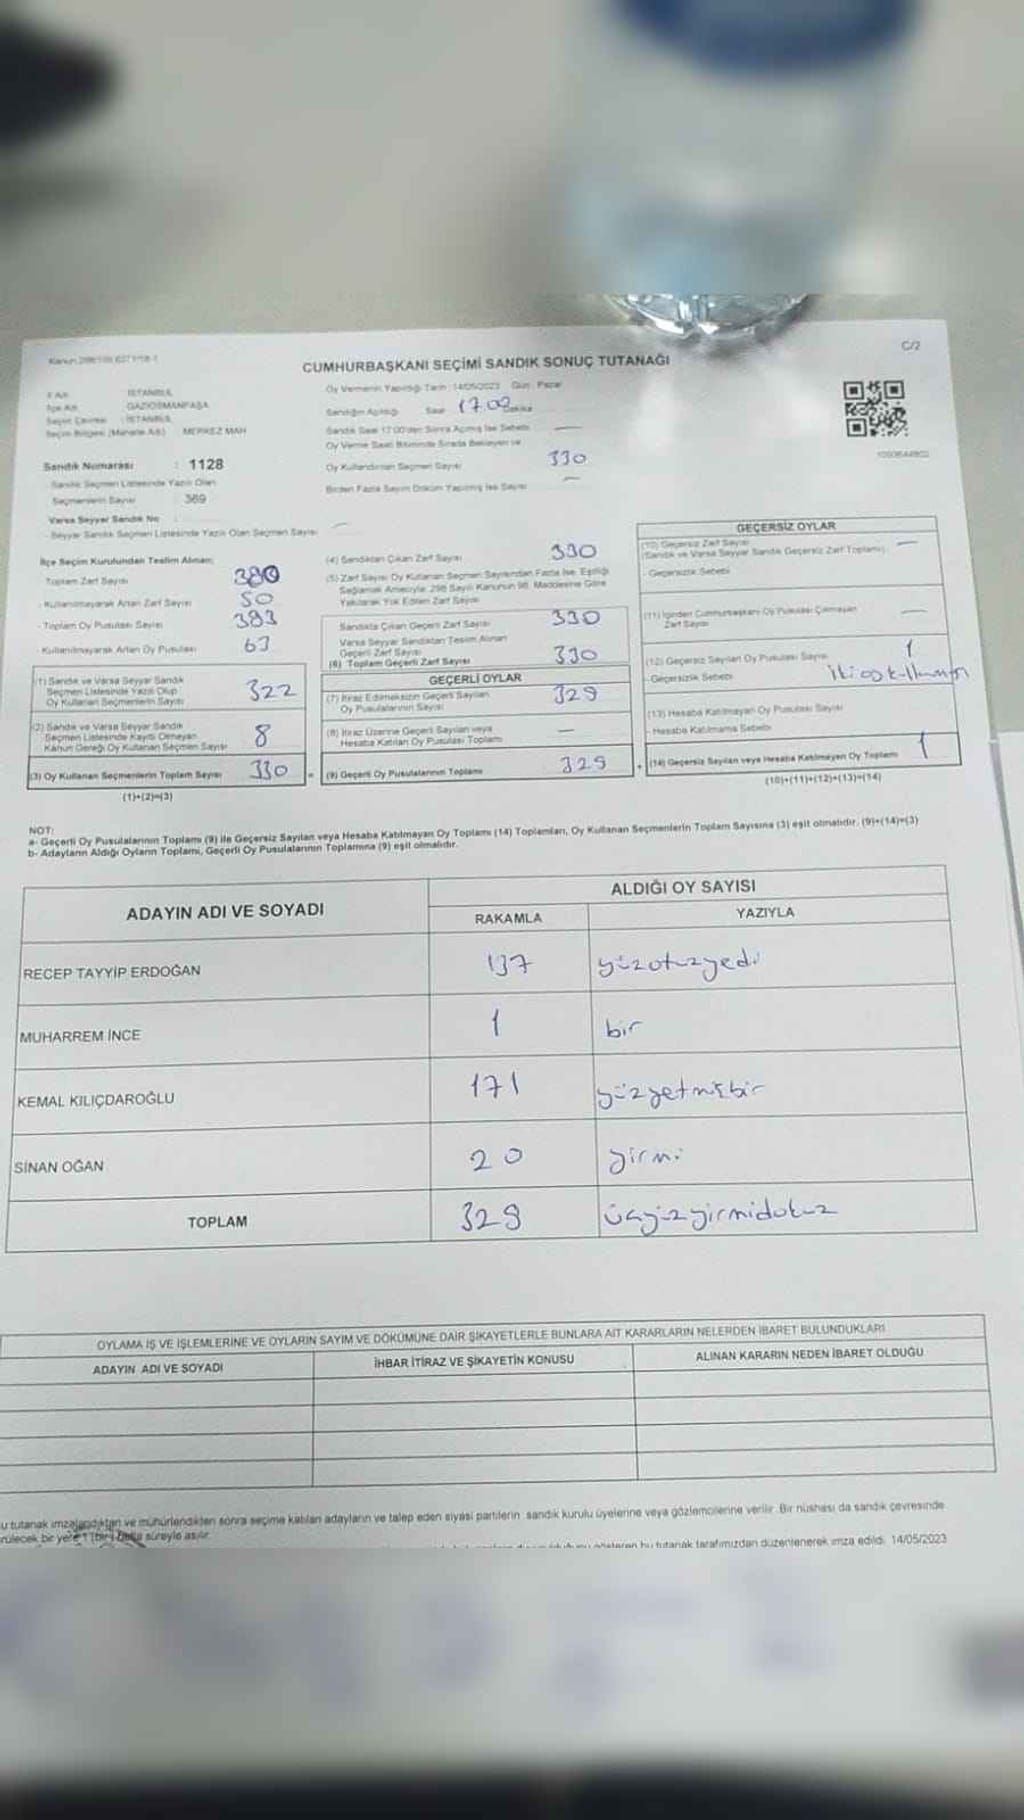 C/2
CUMHURBAŞKANI SEÇİMİ SANDIK SONUÇ TUTANAĞI
İl Adı İSTANBUL
İlçe Adı GAZİOSMANPAŞA
Seçim Çevresi : İSTANBUL
Seçim Bölgesi (Mahalle Adı) MERKEZ MAH
Sandık Numarası : 1128
Sandık Seçmen Listesinde Yazılı Olan
Seçmenlerin Sayısı : 369
Varsa Seyyar Sandık No
Seyyar Sandık Seçmen Listesinde Yazılı Olan Seçmen Sayısı —
Oy Vermenin Yapıldığı Tarih : 14/05/2023 Gün : Pazar
Sandığın Açıldığı Saat 17 02 Dakika
Sandık Saat 17:00'den Sonra Açılmış İse Sebebi —
Oy Verme Saati Bitiminde Sırada Bekleyen ve
Oy Kullandırılan Seçmen Sayısı 330
Birden Fazla Sayım Döküm Yapılmış İse Sayısı —
İlçe Seçim Kurulundan Teslim Alınan;
Toplam Zarf Sayısı 380
- Kullanılmayarak Artan Zarf Sayısı 50
- Toplam Oy Pusulası Sayısı 383
- Kullanılmayarak Artan Oy Pusulası 63
(1) Sandık ve Varsa Seyyar Sandık
Seçmen Listesinde Yazılı Olup
Oy Kullanan Seçmenlerin Sayısı 322
(2) Sandık ve Varsa Seyyar Sandık
Seçmen Listesinde Kayıtlı Olmayan
Kanun Gereği Oy Kullanan Seçmen Sayısı 8
(3) Oy Kullanan Seçmenlerin Toplam Sayısı 330
(1)+(2)=(3)
(4) Sandıktan Çıkan Zarf Sayısı 330
(5) Zarf Sayısı Oy Kullanan Seçmen Sayısından Fazla İse, Eşitliği
Sağlamak Amacıyla 298 Sayılı Kanunun 98. Maddesine Göre
Yakılarak Yok Edilen Zarf Sayısı
Sandıkta Çıkan Geçerli Zarf Sayısı 330
Varsa Seyyar Sandıktan Teslim Alınan
Geçerli Zarf Sayısı
(6) Toplam Geçerli Zarf Sayısı 330
GEÇERLİ OYLAR
(7) İtiraz Edilmeksizin Geçerli Sayılan
Oy Pusulalarının Sayısı 329
(8) İtiraz Üzerine Geçerli Sayılan veya
Hesaba Katılan Oy Pusulası Toplamı —
= (9) Geçerli Oy Pusulalarının Toplamı 329
GEÇERSİZ OYLAR
(10) Geçersiz Zarf Sayısı
(Sandık ve Varsa Seyyar Sandık Geçersiz Zarf Toplamı) —
- Geçersizlik Sebebi
(11) İçinden Cumhurbaşkanı Oy Pusulası Çıkmayan
Zarf Sayısı —
(12) Geçersiz Sayılan Oy Pusulası Sayısı 1
- Geçersizlik Sebebi iki oy kullanımı
(13) Hesaba Katılmayan Oy Pusulası Sayısı
- Hesaba Katılmama Sebebi
+ (14) Geçersiz Sayılan veya Hesaba Katılmayan Oy Toplamı 1
(10)+(11)+(12)+(13)=(14)
NOT:
a- Geçerli Oy Pusulalarının Toplamı (9) ile Geçersiz Sayılan veya Hesaba Katılmayan Oy Toplamı (14) Toplamları, Oy Kullanan Seçmenlerin Toplam Sayısına (3) eşit olmalıdır. (9)+(14)=(3)
b- Adayların Aldığı Oyların Toplamı, Geçerli Oy Pusulalarının Toplamına (9) eşit olmalıdır.
ADAYIN ADI VE SOYADI ALDIĞI OY SAYISI
RAKAMLA YAZIYLA
RECEP TAYYİP ERDOĞAN 137 yüzotuzyedi
MUHARREM İNCE 1 bir
KEMAL KILIÇDAROĞLU 171 yüzyetmişbir
SİNAN OĞAN 20 yirmi
TOPLAM 329 üçyüzyirmidokuz
OYLAMA İŞ VE İŞLEMLERİNE VE OYLARIN SAYIM VE DÖKÜMÜNE DAİR ŞİKAYETLERLE BUNLARA AİT KARARLARIN NELERDEN İBARET BULUNDUKLARI
ADAYIN ADI VE SOYADI İHBAR İTİRAZ VE ŞİKAYETİN KONUSU ALINAN KARARIN NEDEN İBARET OLDUĞU
u tutanak imzalandıktan ve mühürlendikten sonra seçime katılan adayların ve talep eden siyasi partilerin sandık kurulu üyelerine veya gözlemcilerine verilir. Bir nüshası da sandık çevresinde
rülecek bir yere 1 (bir) hafta süreyle asılır.
gösteren bu tutanak tarafımızdan düzenlenerek imza edildi. 14/05/2023